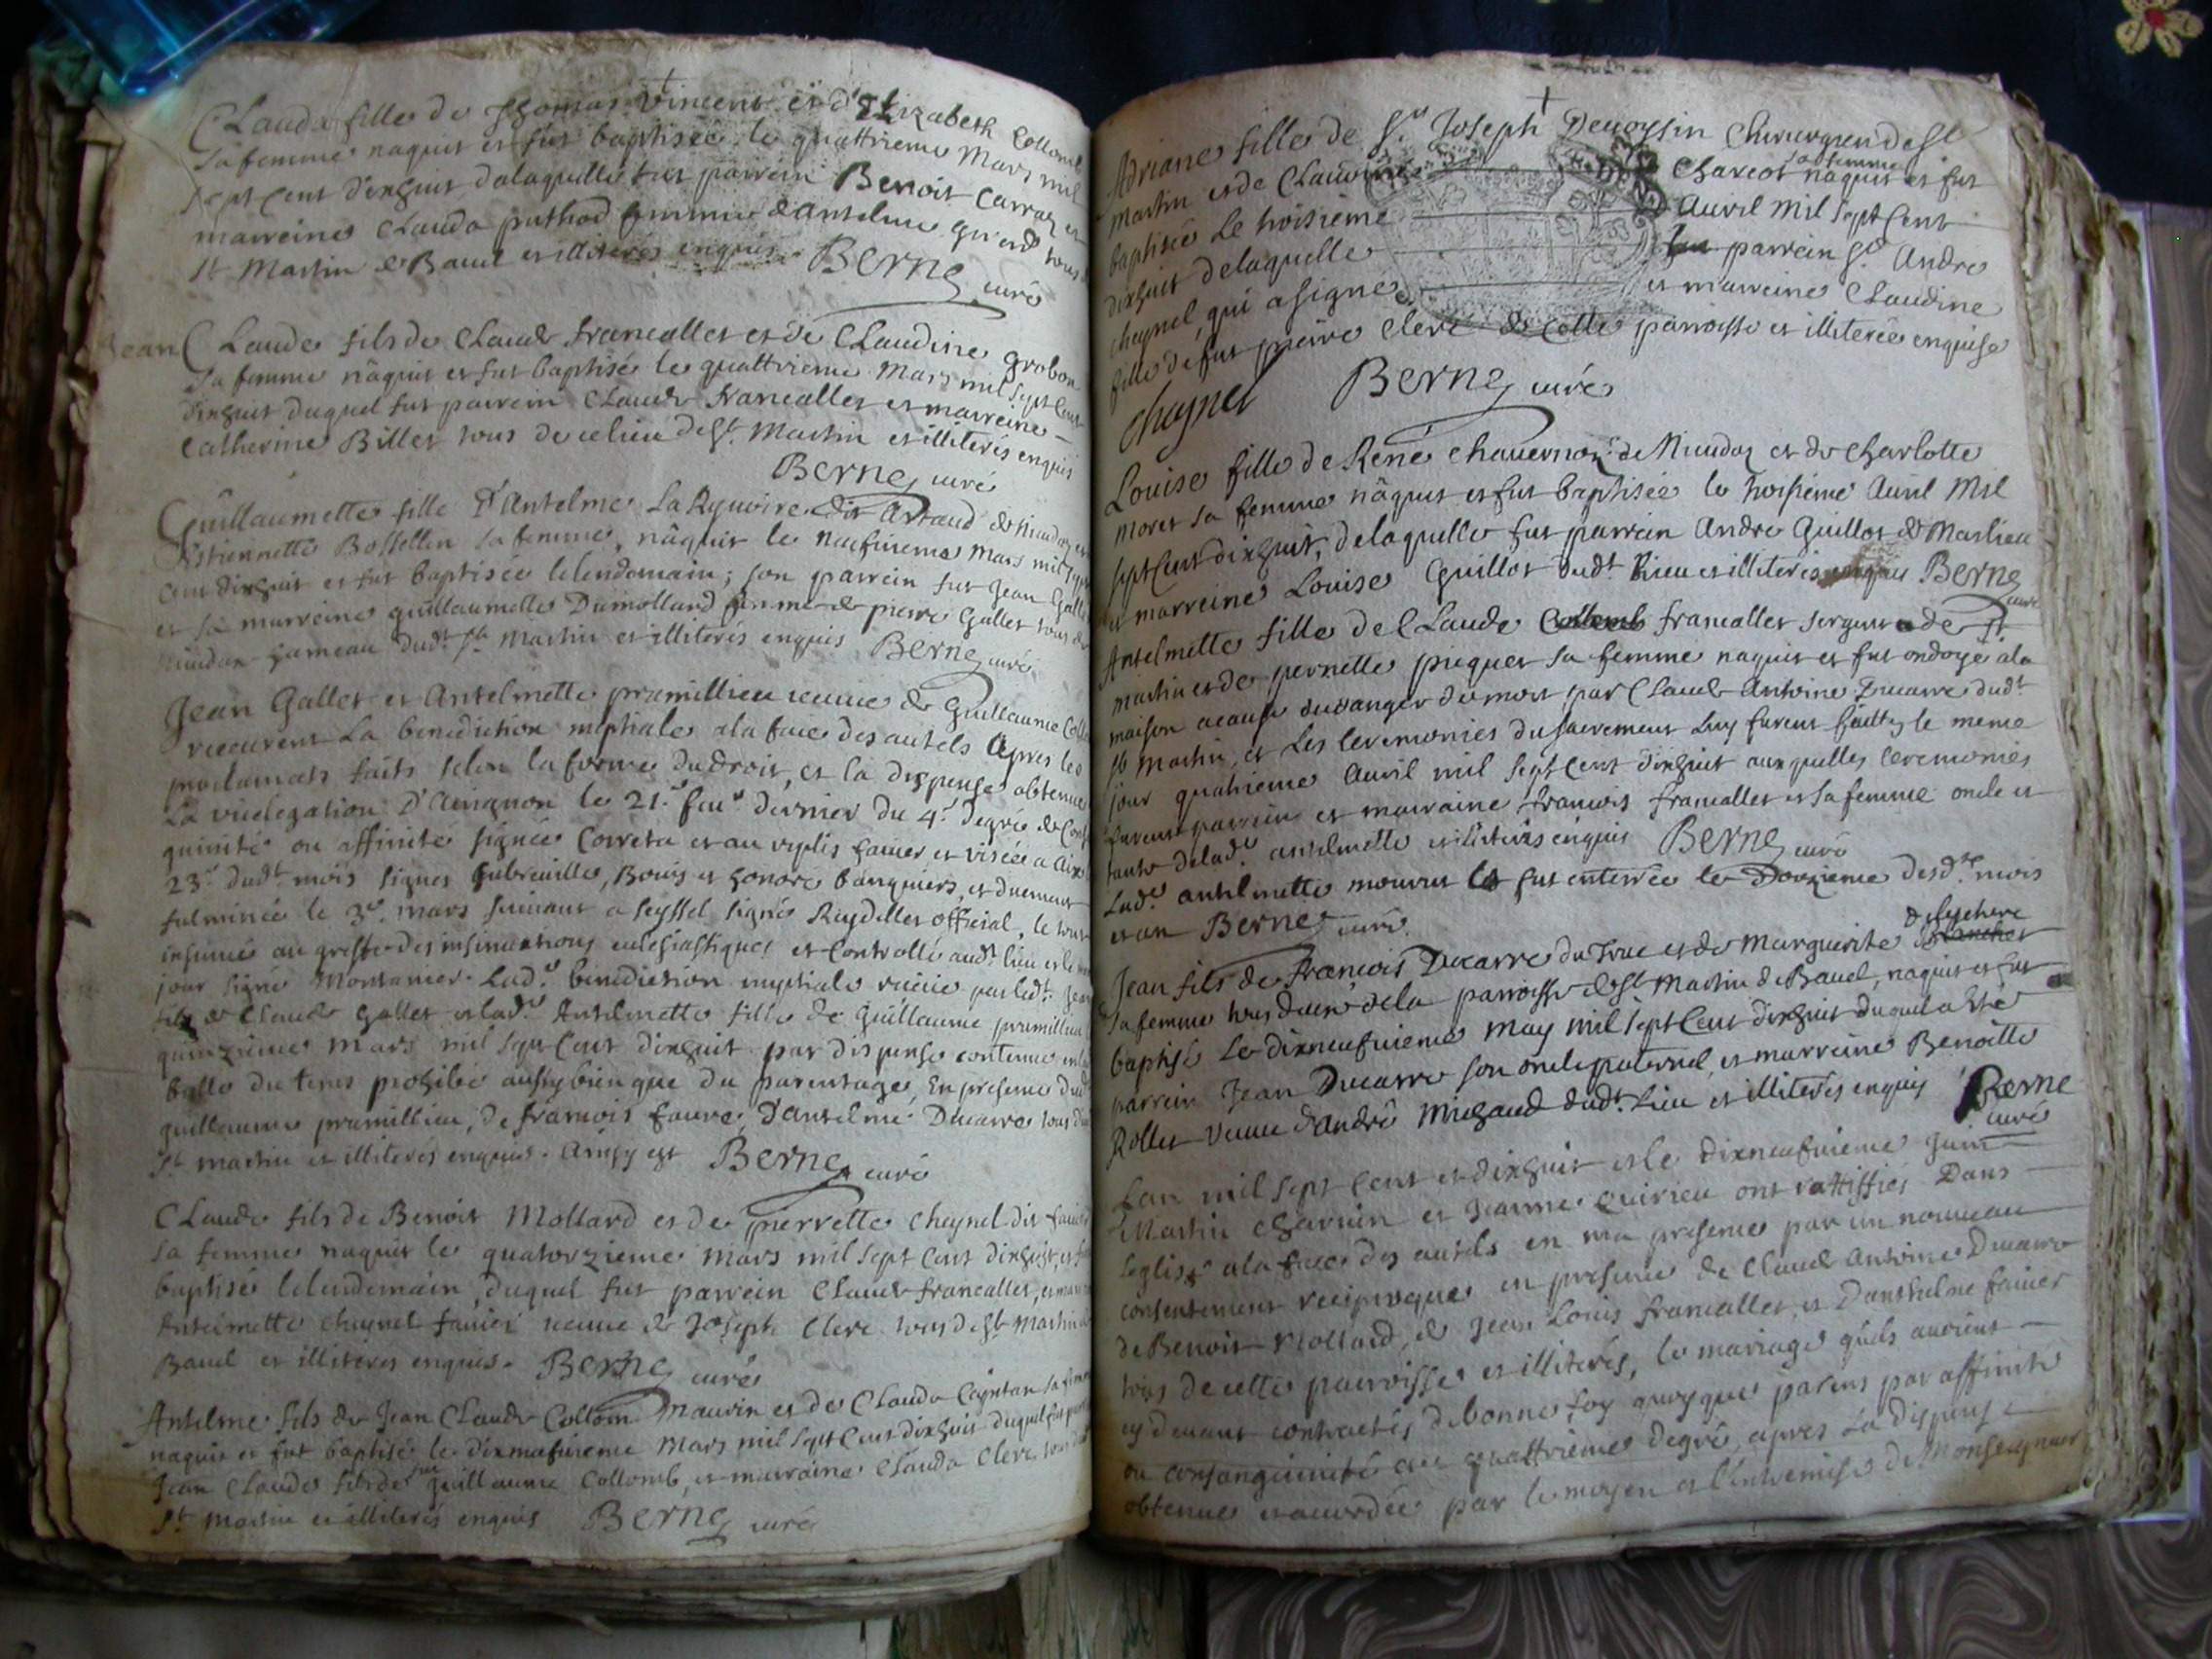 Clauda fille de Thomas Vincent et d'Elizabeth Collomb
sa femme naquit et fut baptisée le quattrieme Mars mil
sept cent dixhuit delaquelle fut parrein Benoit Carraz et
marreine Clauda puthod femme d'Antelme tous
St Martin de Bavel et illiterés enquis Berne curé
Jean Claude fils de Claude francallet et de Claudine grobon
sa femme nâquit et fut baptisé le quattrieme Mars mil sept cent
dixhuit duquel fut parrein Claude francallet et marreine
Catherine Billet tous de ce lieu de St. Martin et illiterés enquis
Berne curé
Guillaumette fille d'Antelme La Ryuoire dit Artaud de
Estiennette Bossellin sa femme, nâquit le neufuieme Mars mil sept
cent dixhuit et fut baptisée le lendemain; son parrein fut Jean Gallet
et sa marreine guillaumette Dumollard femme de pierre Gallet tous de
hameau dudt St Martin et illiterés enquis Berne curé
Jean Gallet et Antelmette premillieu veuve de Guillaume
receurent La benediction nuptiale ala face des autels apres les
proclamats faits selon la forme du droit, et la dispense obtenue
La vicelegation D'Auignon le 21e feur dernier du 4e degré de
guinité ou affinité signée Correta et au replis fauier et visée a Aix
23e dudt mois signés fubreuille, Bouis et honore banquiers, et duement
fulminée le 3e mars suiuant a Seyssel signé Reydellet official, le tout
insinué au greffe des insinuations eclesiastiques et controllé audt lieu et le
jour signé Montanier. Lade benediction nuptiale receue par ledt Jean
fils de Claude Gallet et lade Antelmette fille de Guillaume premillieu
quinzieme mars mil sept cent dixhuit par dispense contenue en la
bulle du tems prohibé aussy bien que du parentage, En presence dudt
guillaume premillieu, de francois faure, d'antelme Ducarre tous de
St martin et illiterés enquis. Ainsy est Berne curé
Claude fils de Benoit Mollard et de pierrette cheynel dit fauier
sa femme naquit le quatorzieme mars mil sept cent dixhuit, et fut
baptisé le lendemain, duquel fut parrein Claude francallet, et marreine
Antelmette cheynel fauier veuve de Joseph Clerc tous de St Martin de
Bavel et illiterés enquis. Berne curé
Antelme fils de Jean Claude Collom Maurin et de Clauda Cajetan sa femme
naquit et fut baptisé le dixneufuieme Mars mil sept cent dixhuit duquel fut parrein
Jean Claude fils de feu guillaume Collomb, et marraine Clauda Clerc tous de
St Martin et illiterés enquis Berne curé
Adriane fille de Sr Joseph Deuoysin Chirurgien de St
Martin et de Claudine Charcot sa femme naquit et fut
baptisée Le troisieme Auril Mil sept cent
dixhuit delaquelle fut parrein Sr Andre
cheynel, qui a signé et marreine Claudine
fille de fut pierre Clerc de cette parroisse et illiterée enquise
Cheynel Berne curé
Louise fille de René Chauernoz de et de Charlotte
moret sa femme nâquit et fut baptisée le troisieme Auril Mil
sept cent dixhuit, delaquelle fut parrein Andre Guillot de Marlieu
et marreine Louise Guillot dudt lieu et illiterés enquis Berne
curé
Antelmette fille de Claude Collomb francallet sergent de St
martin et de pernette piequet sa femme naquit et fut ondoyé ala
maison acause dudanger demort par Claude Antoine Ducarre dudt
St Martin, et Les ceremonies du sacrement luy furent faittes le meme
jour quatrieme Auril mil sept cent dixhuit auxquelles ceremonies
furent parrein et marraine francois francallet et sa femme oncle et
tante delade antelmette et illiterés enquis Berne curé
Lade antelmette mourut et fut enterrée le Douzieme desdts mois
et an Berne curé.
Jean fils de François Ducarre et de Marguerite
sa femme tous deux dela parroisse de St Martin de Bavel, naquit et fut
baptisé Le dixneufuieme May mil sept cent dixhuit duquel a été
parrein Jean Ducarre son oncle paternel, et marreine Benoitte
Rollet veuve d'André Mugaud dudt Lieu et illiterés enquis Berne
curé
Lan mil sept cent et dixhuit et le dixneufuieme juin
Martin Charuin et Jeanne Quirieu ont rattiffiés Dans
leglise ala face des autels en ma presence par un nouveau
consentement reciproque en presence de Claude Antoine Ducarre
de Benoit Mollard, de Jean Louis francallet, et D'anthelme fauier
tous de cette parroisse et illiterés, le mariage quils auoient
cy deuant contractés de bonne foy quoyque parens par affinité
ou consanguinité au quattrieme degré, apres La dispense
obtenue et accordée par le moyen et l'entremise de Monseigneur